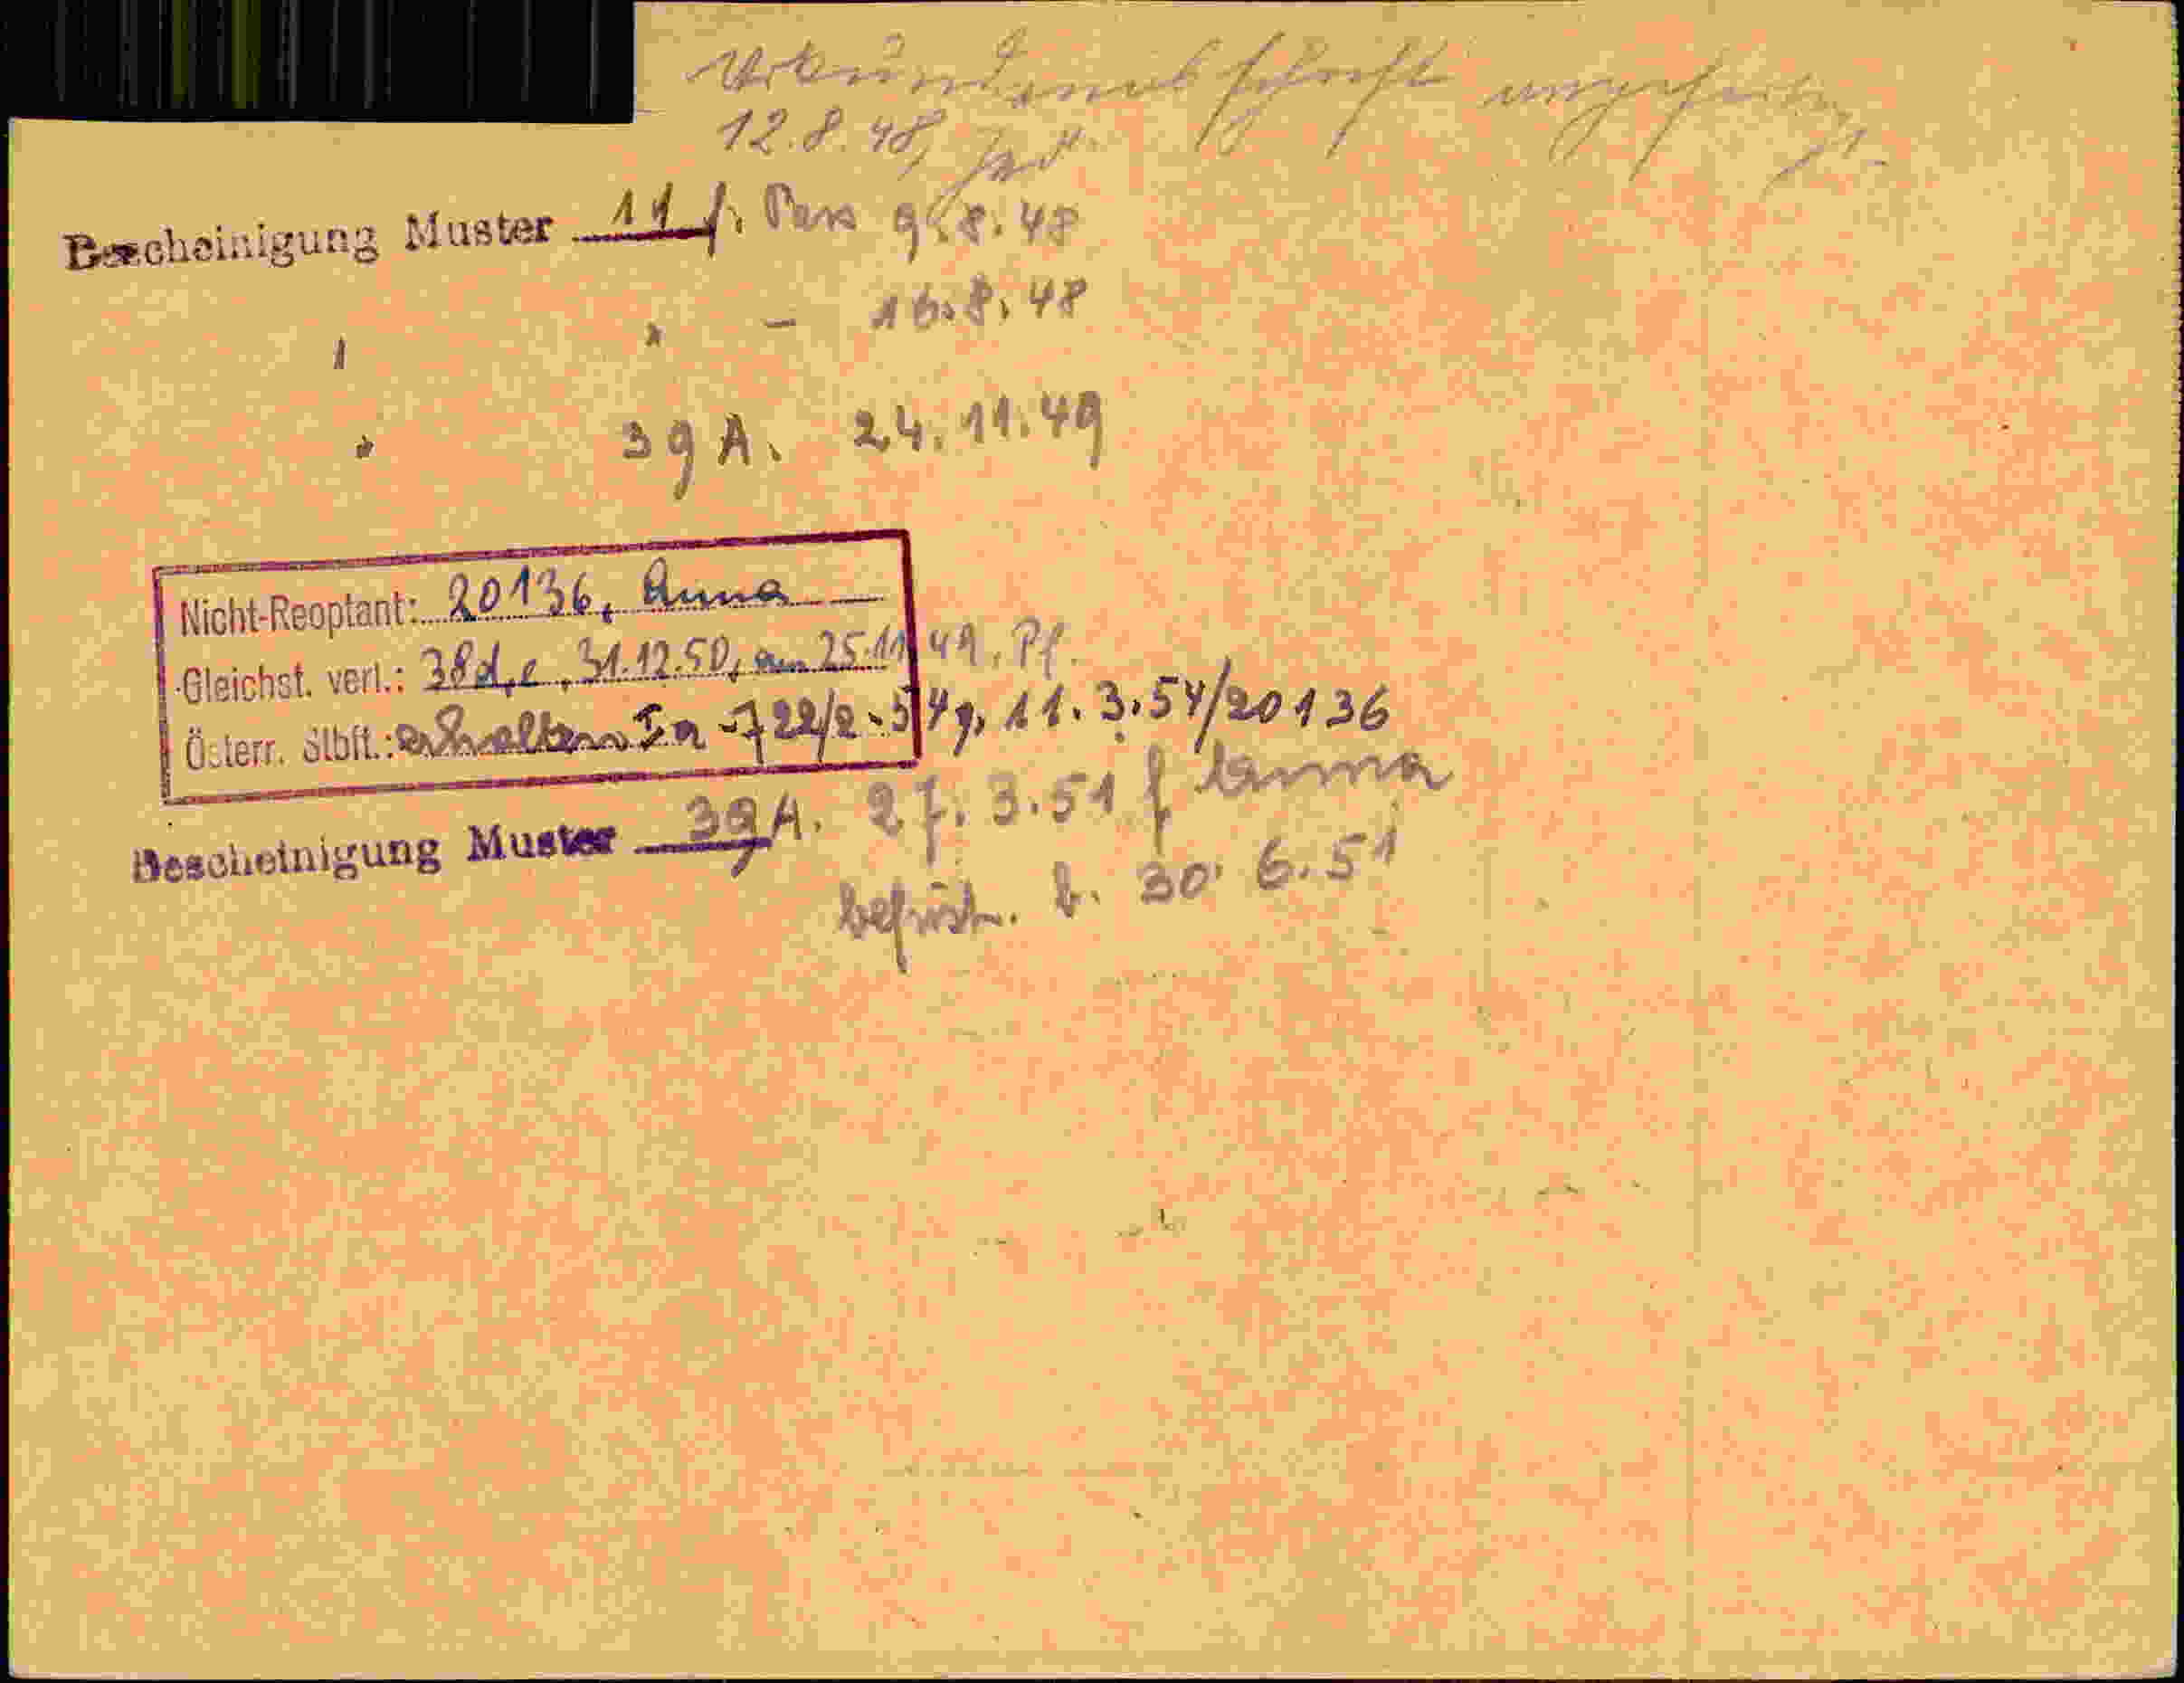 Urkundenabschrift
12.8.48,
Bescheinigung Muster 11 f. Pass 9.8.48
" " – 16.8.48
" 39 A. 24.11.49
Nicht-Reoptant: 20136, Anna
Gleichst. verl.: 38d,e, 31.12.50, am 25.11.49. Pf.
Österr. Stbft.: erhalten Ia-722/2-54 11.3.54/20136
Bescheinigung Muster 39A. 27.3.51 f Anna
befrist. b. 30.6.51